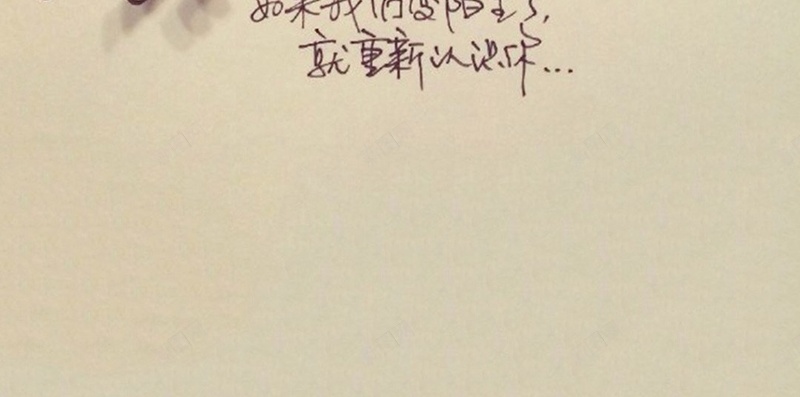 如果我们变陌生了，
就重新认识你…